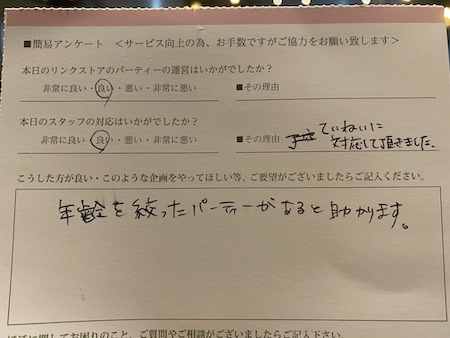 ■簡易アンケート ＜サービス向上の為、お手数ですがご協力をお願い致します＞
本日のリンクストアのパーティーの運営はいかがでしたか？
非常に良い・良い・悪い・非常に悪い ■その理由
本日のスタッフの対応はいかがでしたか？
非常に良い・良い・悪い・非常に悪い ■その理由 ていねいに
対応して頂きました。
こうした方が良い・このような企画をやってほしい等、ご要望がございましたらご記入ください。
年齢を絞ったパーティーがあると助かります。
に関してお困りのこと、ご質問やご相談がございましたらご記入下さい。